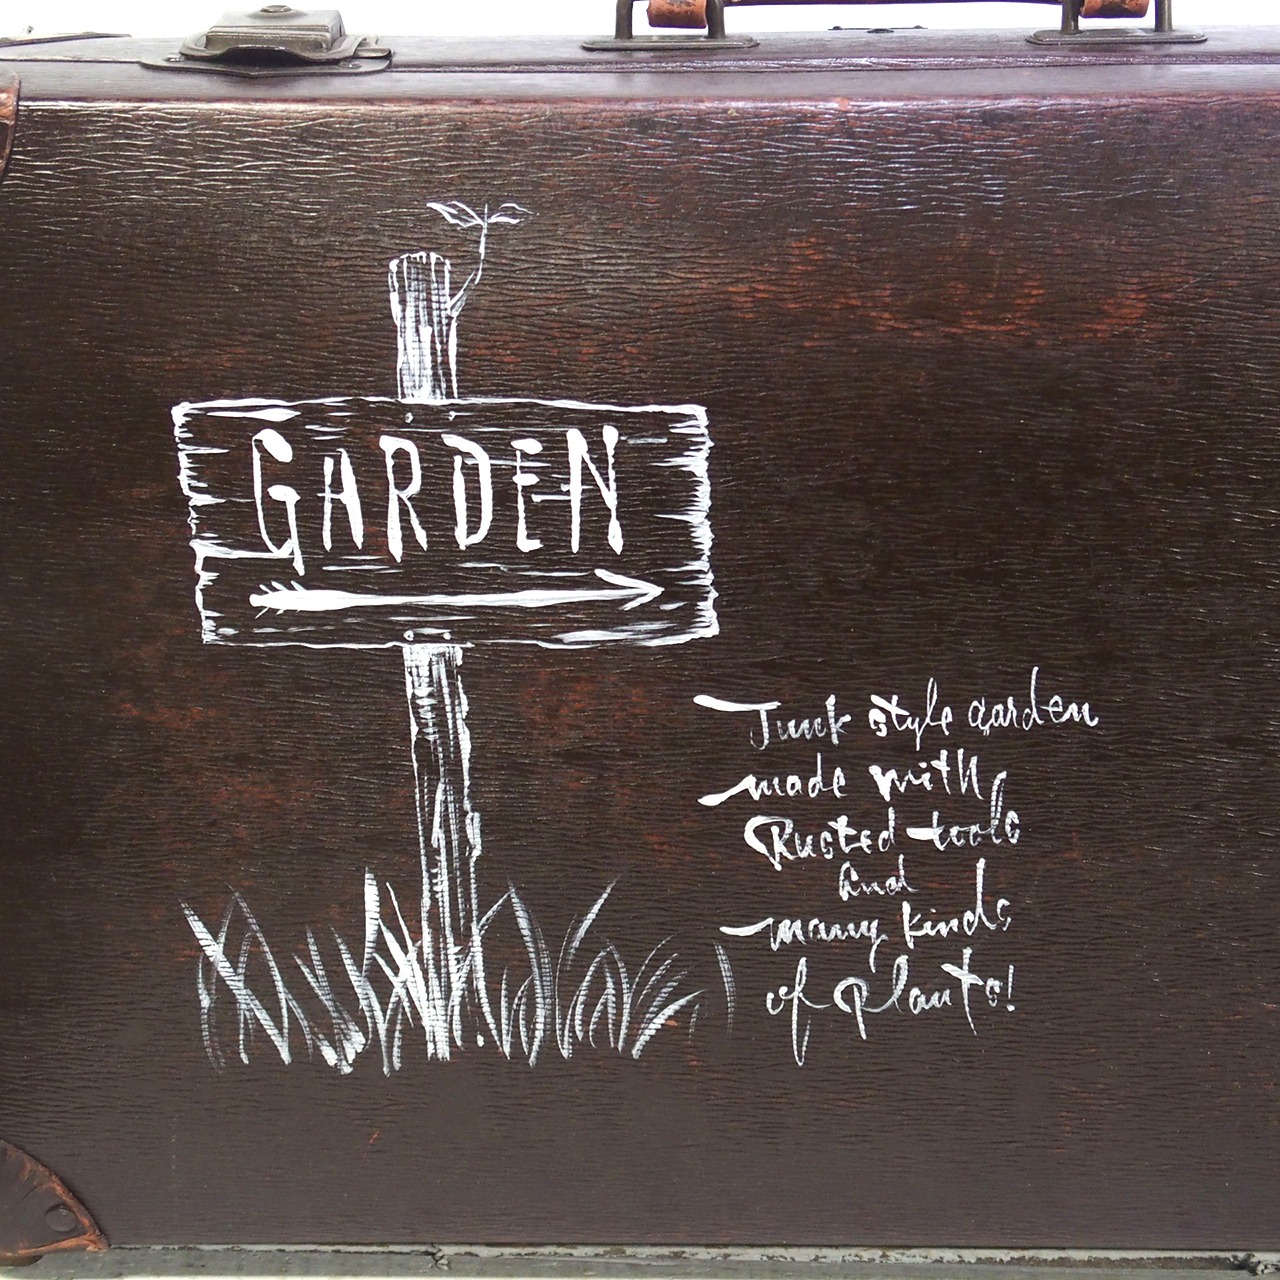 GARDEN
Junk style garden
made with
Rusted tools
and
many kinds
of plants!